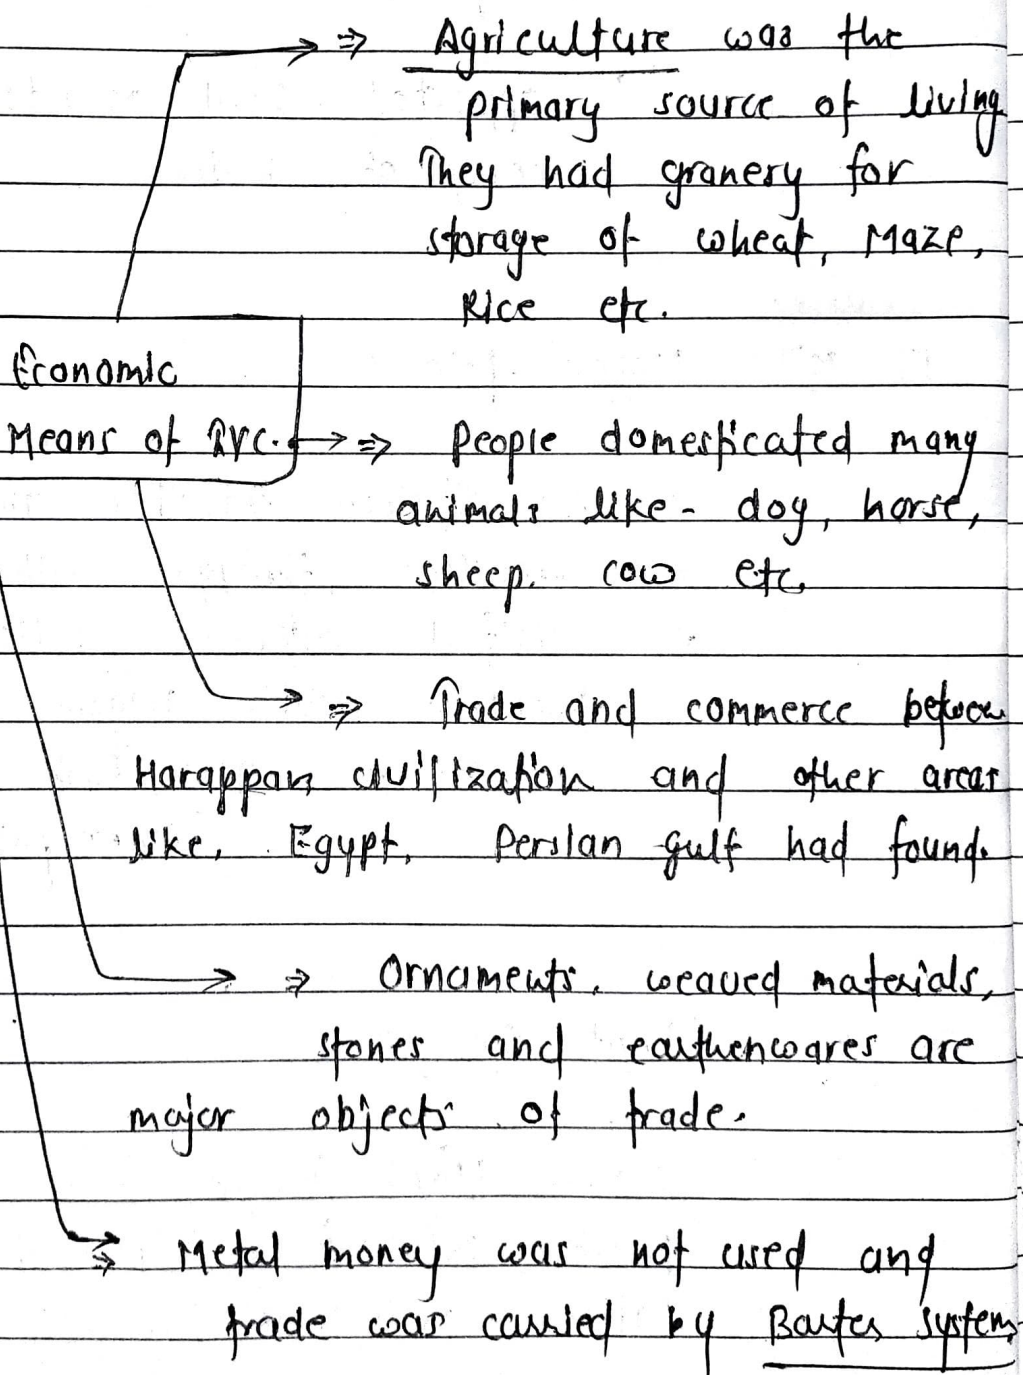 ⇒ Agriculture was the
primary source of living
They had granery for
storage of wheat, Maze,
Rice etc.
Economic
Means of IVC.
⇒ People domesticated many
animals like - dog, horse,
sheep. cow etc.
⇒ Trade and commerce between
Harappan civilization and other areas
like, Egypt, Persian gulf had found.
⇒ Ornaments, weaved materials,
stones and earthenwares are
major objects of trade.
⇒ Metal money was not used and
trade was carried by Barter system